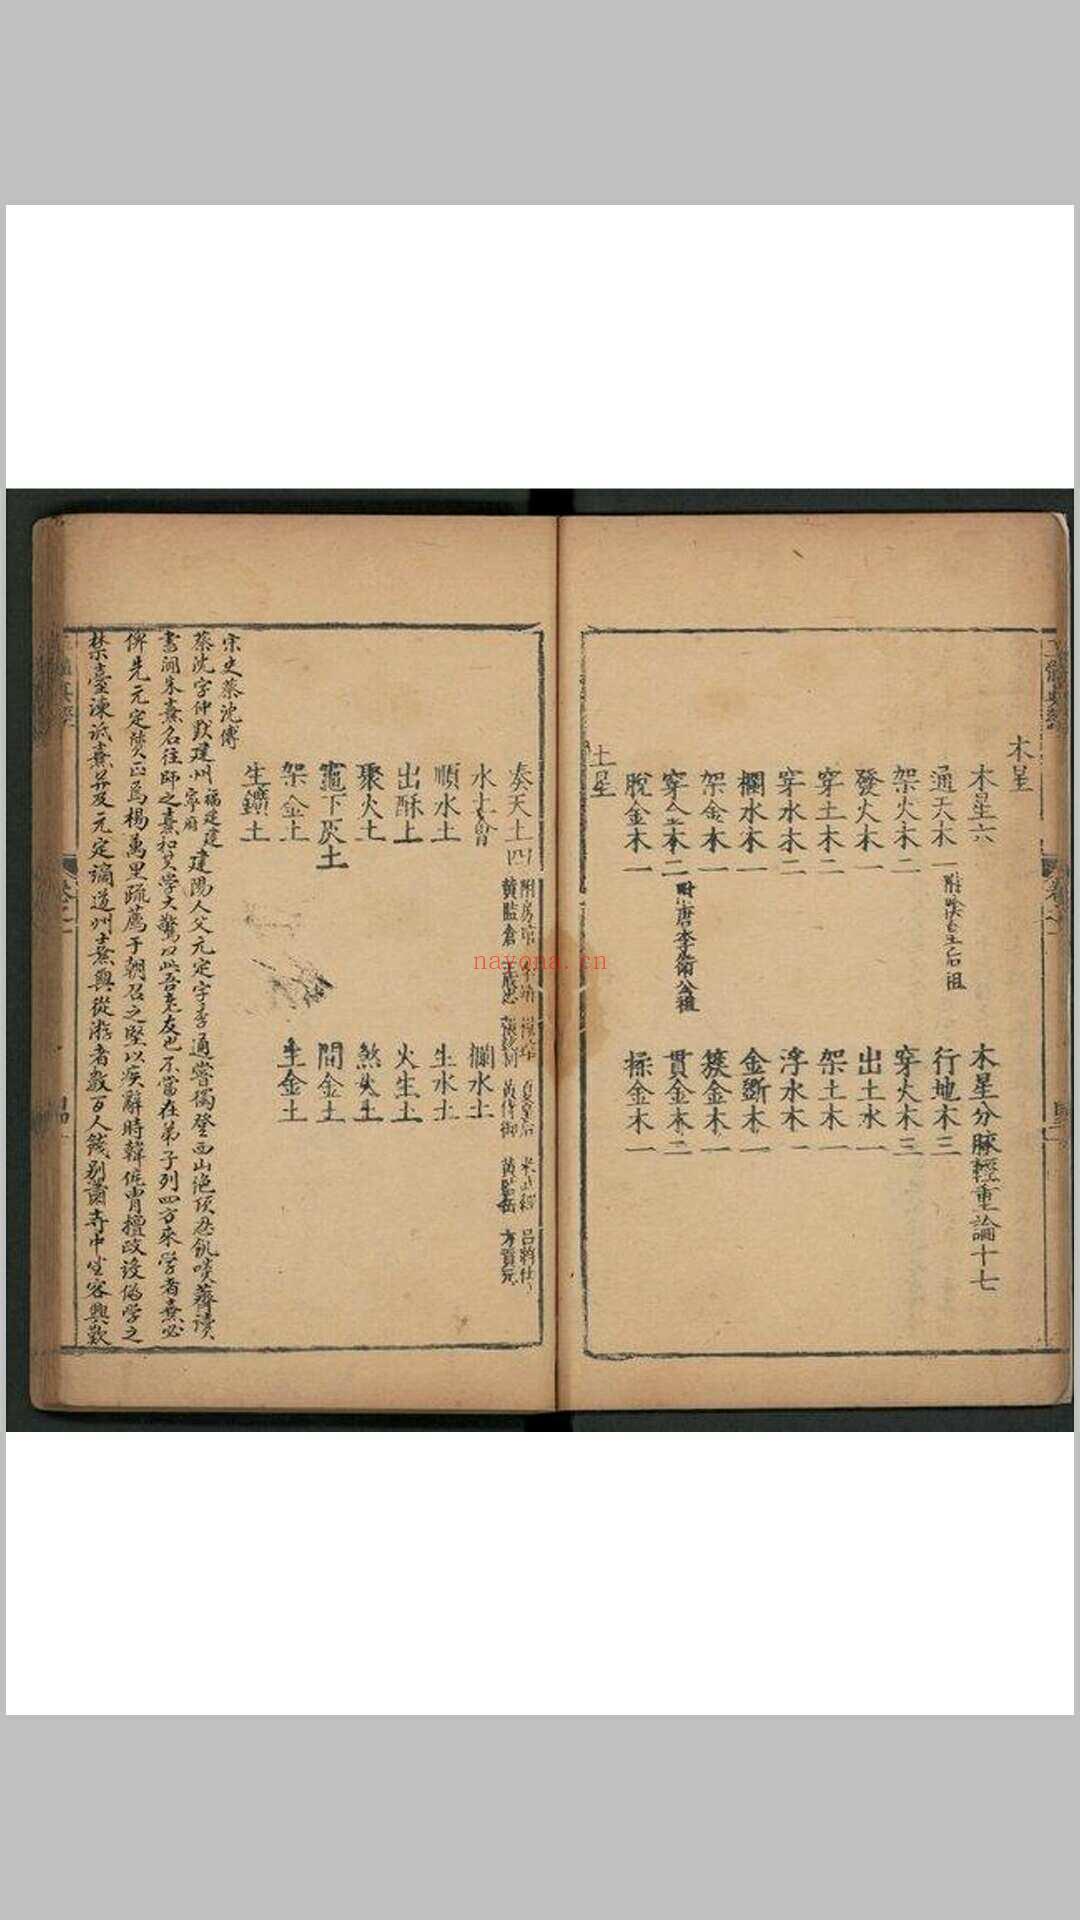 木星
木星六
木星分脉輕重論十七
通天木一
后祖
行地木三
架火木二
穿火木三
發火木一
出土木一
穿土木二
架土木一
穿水木二
浮水木一
欄水木一
金斷木一
架金木一
簇金木一
穿金木二
附唐李衛公祖
貫金木二
脫金木一
揉金木一
土星
奏天土四
黃監倉
黃侍御
呂將仕
水土
欄水土
順水土
生水土
出酥土
火生土
聚火土
煞火土
竈下灰土
間金土
架金土
生金土
生鑛土
宋史蔡沈傳
蔡沈字仲默建州福建建寧府建陽人父元定字季通嘗獨登西山絕頂忍飢啖薺讀
書聞朱熹名往師之熹扣其學大驚曰此吾老友也不當在弟子列四方來學者熹必
俾先元定質正焉楊萬里疏薦于朝召之堅以疾辭時韓侂冑擅政設偽學之
禁臺諫詆熹并及元定謫道州熹與從游者數百人餞別蕭寺中坐客興歎
nayona.cn